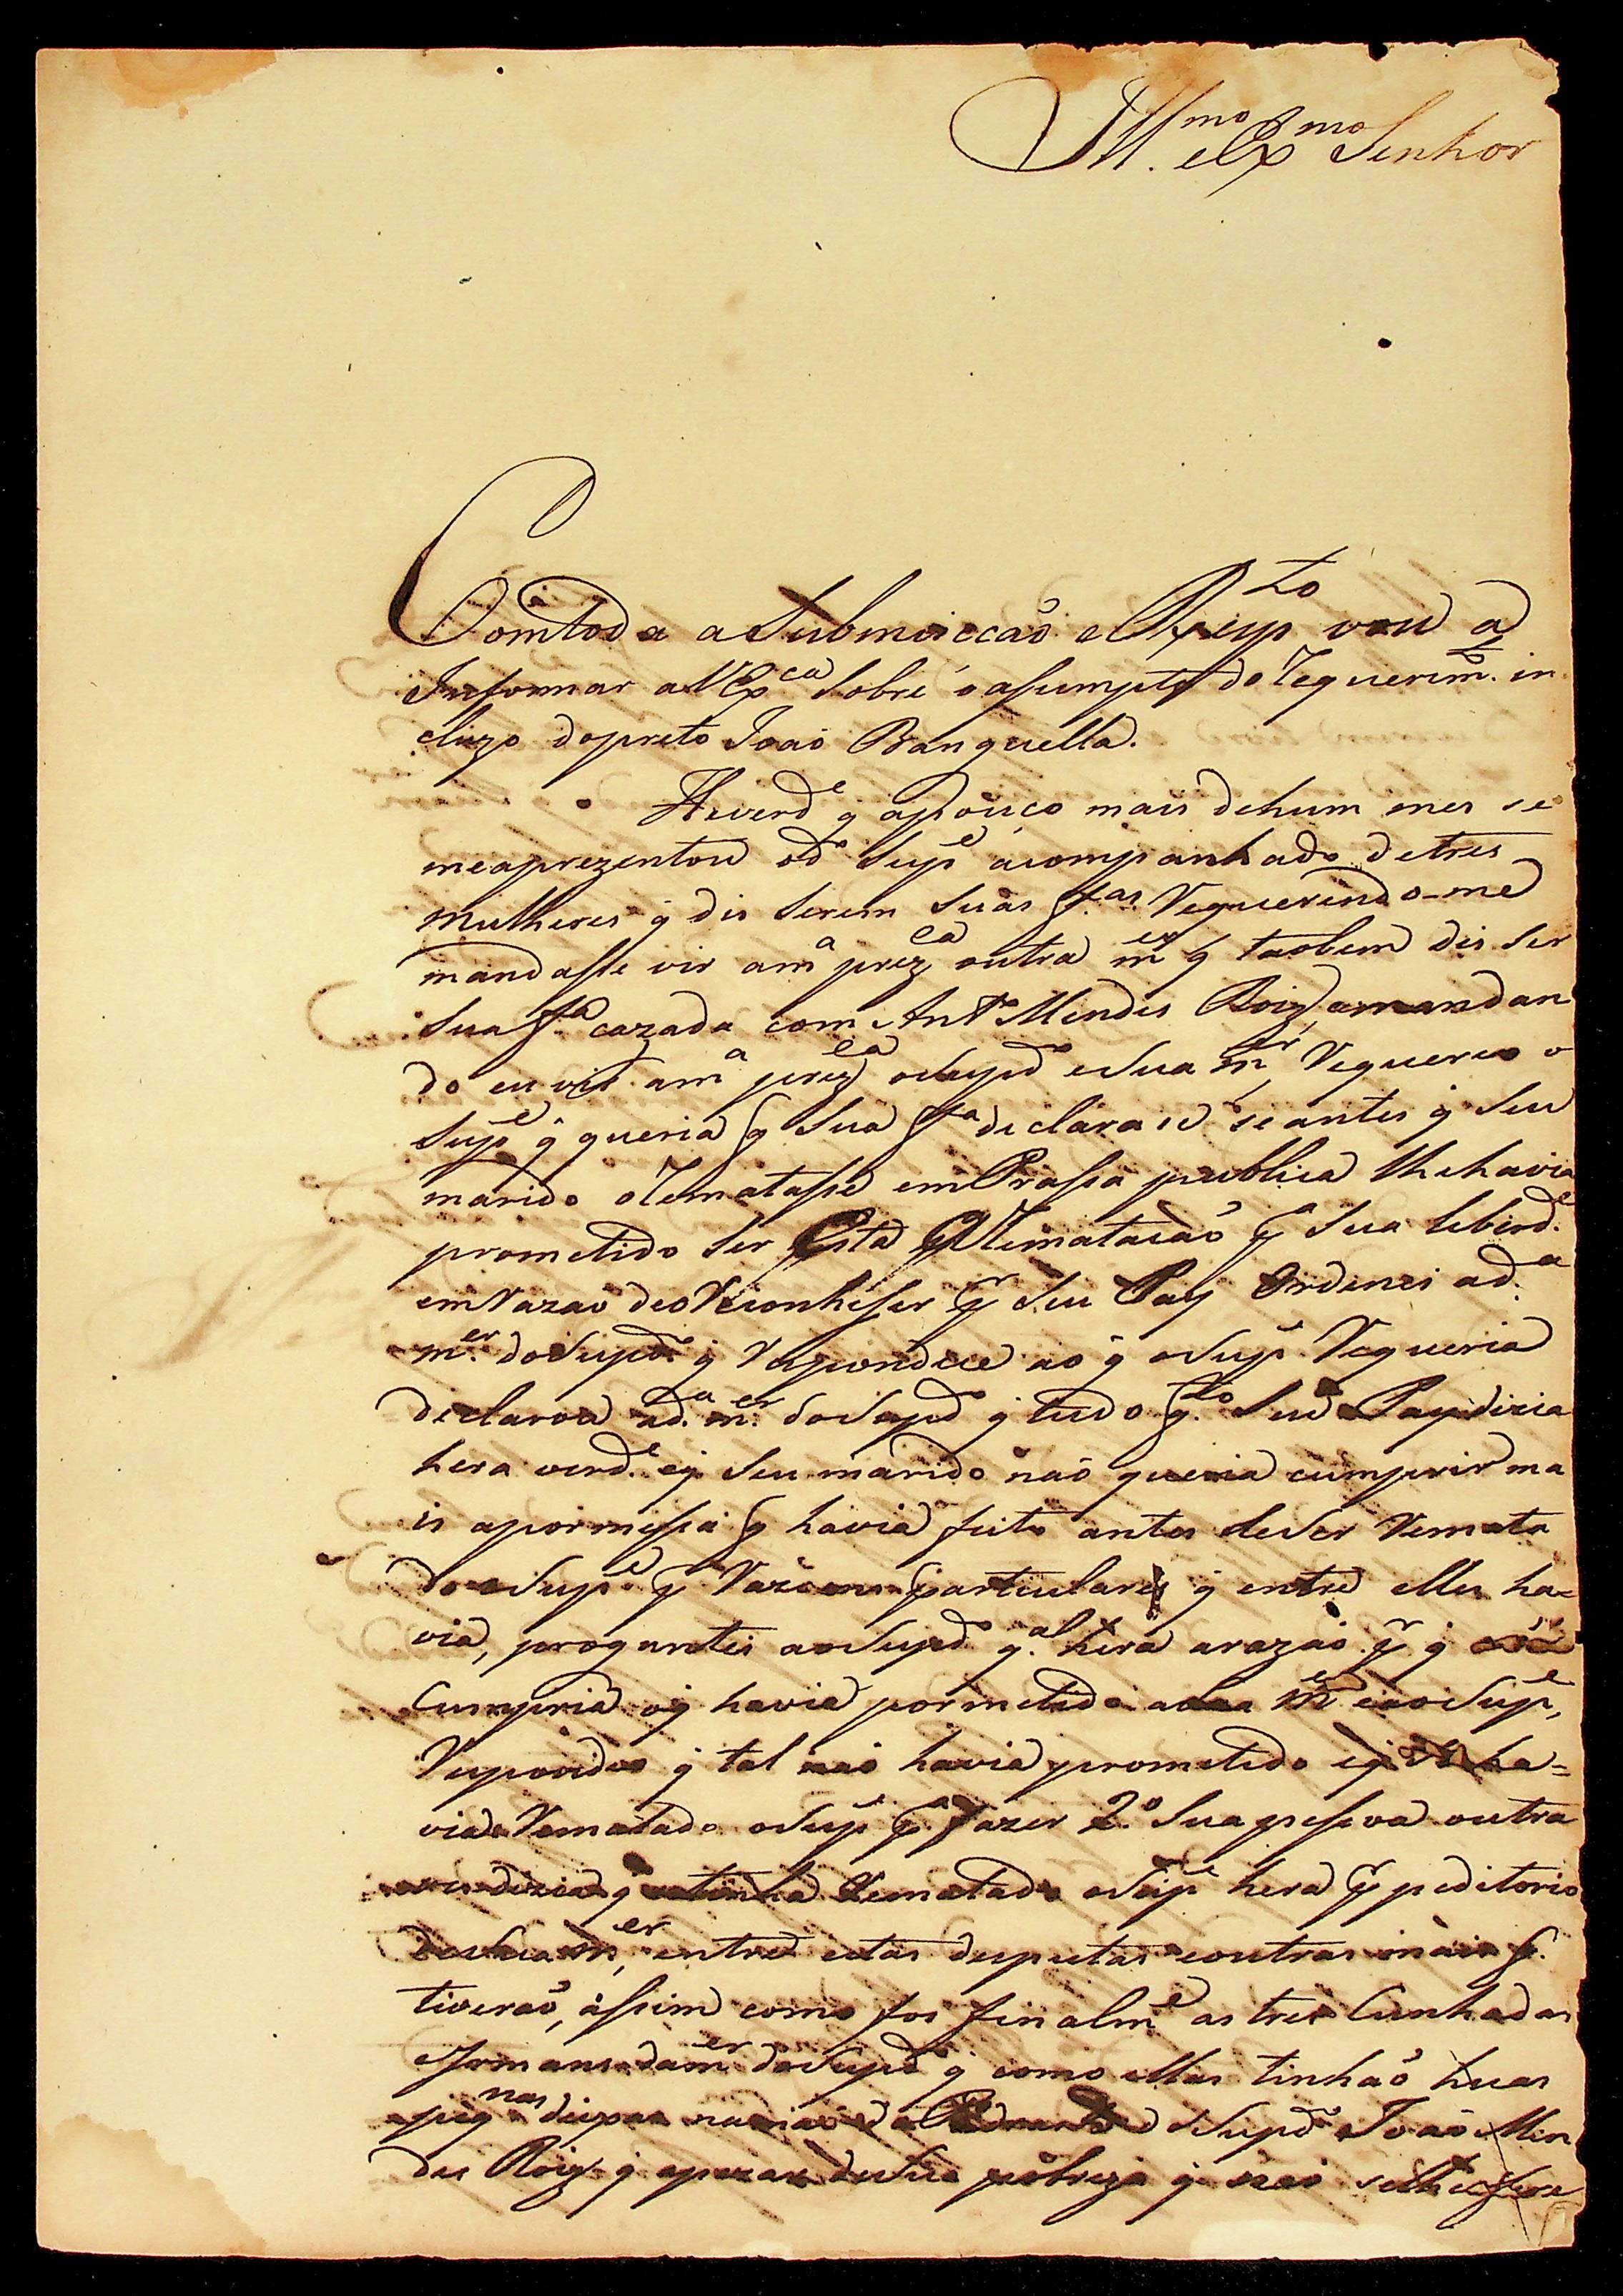 Ill.mo e Ex.mo Senhor
Com toda a Submiccaõ e Resp.to vou a
Informar a V Ex.ca Sobre o asumpto do Requerim.to in
cluzo do preto Joaõ Banguella.
He verd.e q̃ a pouco mais de hum mes se
me aprezentou o d.o Sup.e acompanhado de tres
mulheres q̃ dis serem Suas f.as Requerendo-me
mandasse vir a m.a prez.ca outra m.er q̃ taobem dis ser
Sua f.a cazada com Ant.o Mendes Roiz, e mandan
do eu vir a m.a prez.ca o Sup.do e Sua m.er, Requereo o
Sup.e q̃ queria q̃ Sua f.a declarace se antes q̃ Seu
marido o Rematasse em Prassa publica lhe havia
prometido ser Esta Rematacaõ p.a Sua liberd.e
em Razaõ de o Reconheser p.r Seu Pay Ordenei a d.a
m.er do Sup.do q̃ Respondece ao q̃ o Sup.e Requeria
declarou a d.a m.er do Sup.do q̃ tudo q.to Seu Pay dizia
hera verd.e e q̃ Seu marido naõ queria cumprir ma
is a pormessa q̃ havia feito antes de ser Remata
do o Sup.e p.r Razoens particulares q̃ entre elles ha=
via, proguntei ao Sup.do q.al hera a razaõ p.r q̃ naõ
Cumpria o q̃ havia pormetido a Sua m.er e ao Sup.e,
Respondeo q̃ tal naõ havia prometido e q̃ ha=
via Rematado o Sup.e p.a fazer
dizia q̃ tinha Rematado o Sup.e hera p.r peditorio
de Sua m.er, entre estas desputas e outras mais q̃
tiveraõ, assim como foi finalm.e as tres Cunhadas
e Irmans da m.er do Sup.do q̃ como ellas tinhaõ huas
peq.nas o Sup.do Joaõ Men
des Roiz q̃ apezar de Sua pobreza q̃ naõ